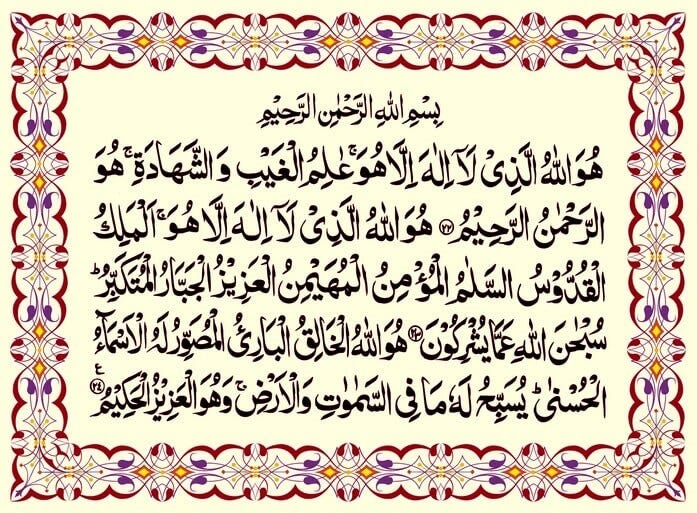 بِسْمِ اللهِ الرَّحْمٰنِ الرَّحِيْمِ
هُوَ اللهُ الَّذِىْ لَآ اِلٰهَ اِلَّا هُوَ ۚ عٰلِمُ الْغَيْبِ وَالشَّهَادَةِ ۚ هُوَ
الرَّحْمٰنُ الرَّحِيْمُ ﴿۲۲﴾ هُوَ اللهُ الَّذِىْ لَآ اِلٰهَ اِلَّا هُوَ ۚ اَلْمَلِكُ
الْقُدُّوْسُ السَّلٰمُ الْمُؤْمِنُ الْمُهَيْمِنُ الْعَزِيْزُ الْجَبَّارُ الْمُتَكَبِّرُ ؕ
سُبْحٰنَ اللهِ عَمَّا يُشْرِكُوْنَ ﴿۲۳﴾ هُوَ اللهُ الْخَالِقُ الْبَارِئُ الْمُصَوِّرُ لَهُ الْاَسْمَآءُ
الْحُسْنٰى ؕ يُسَبِّحُ لَهٗ مَا فِى السَّمٰوٰتِ وَالْاَرْضِ ۚ وَهُوَ الْعَزِيْزُ الْحَكِيْمُ ﴿۲۴﴾ ع